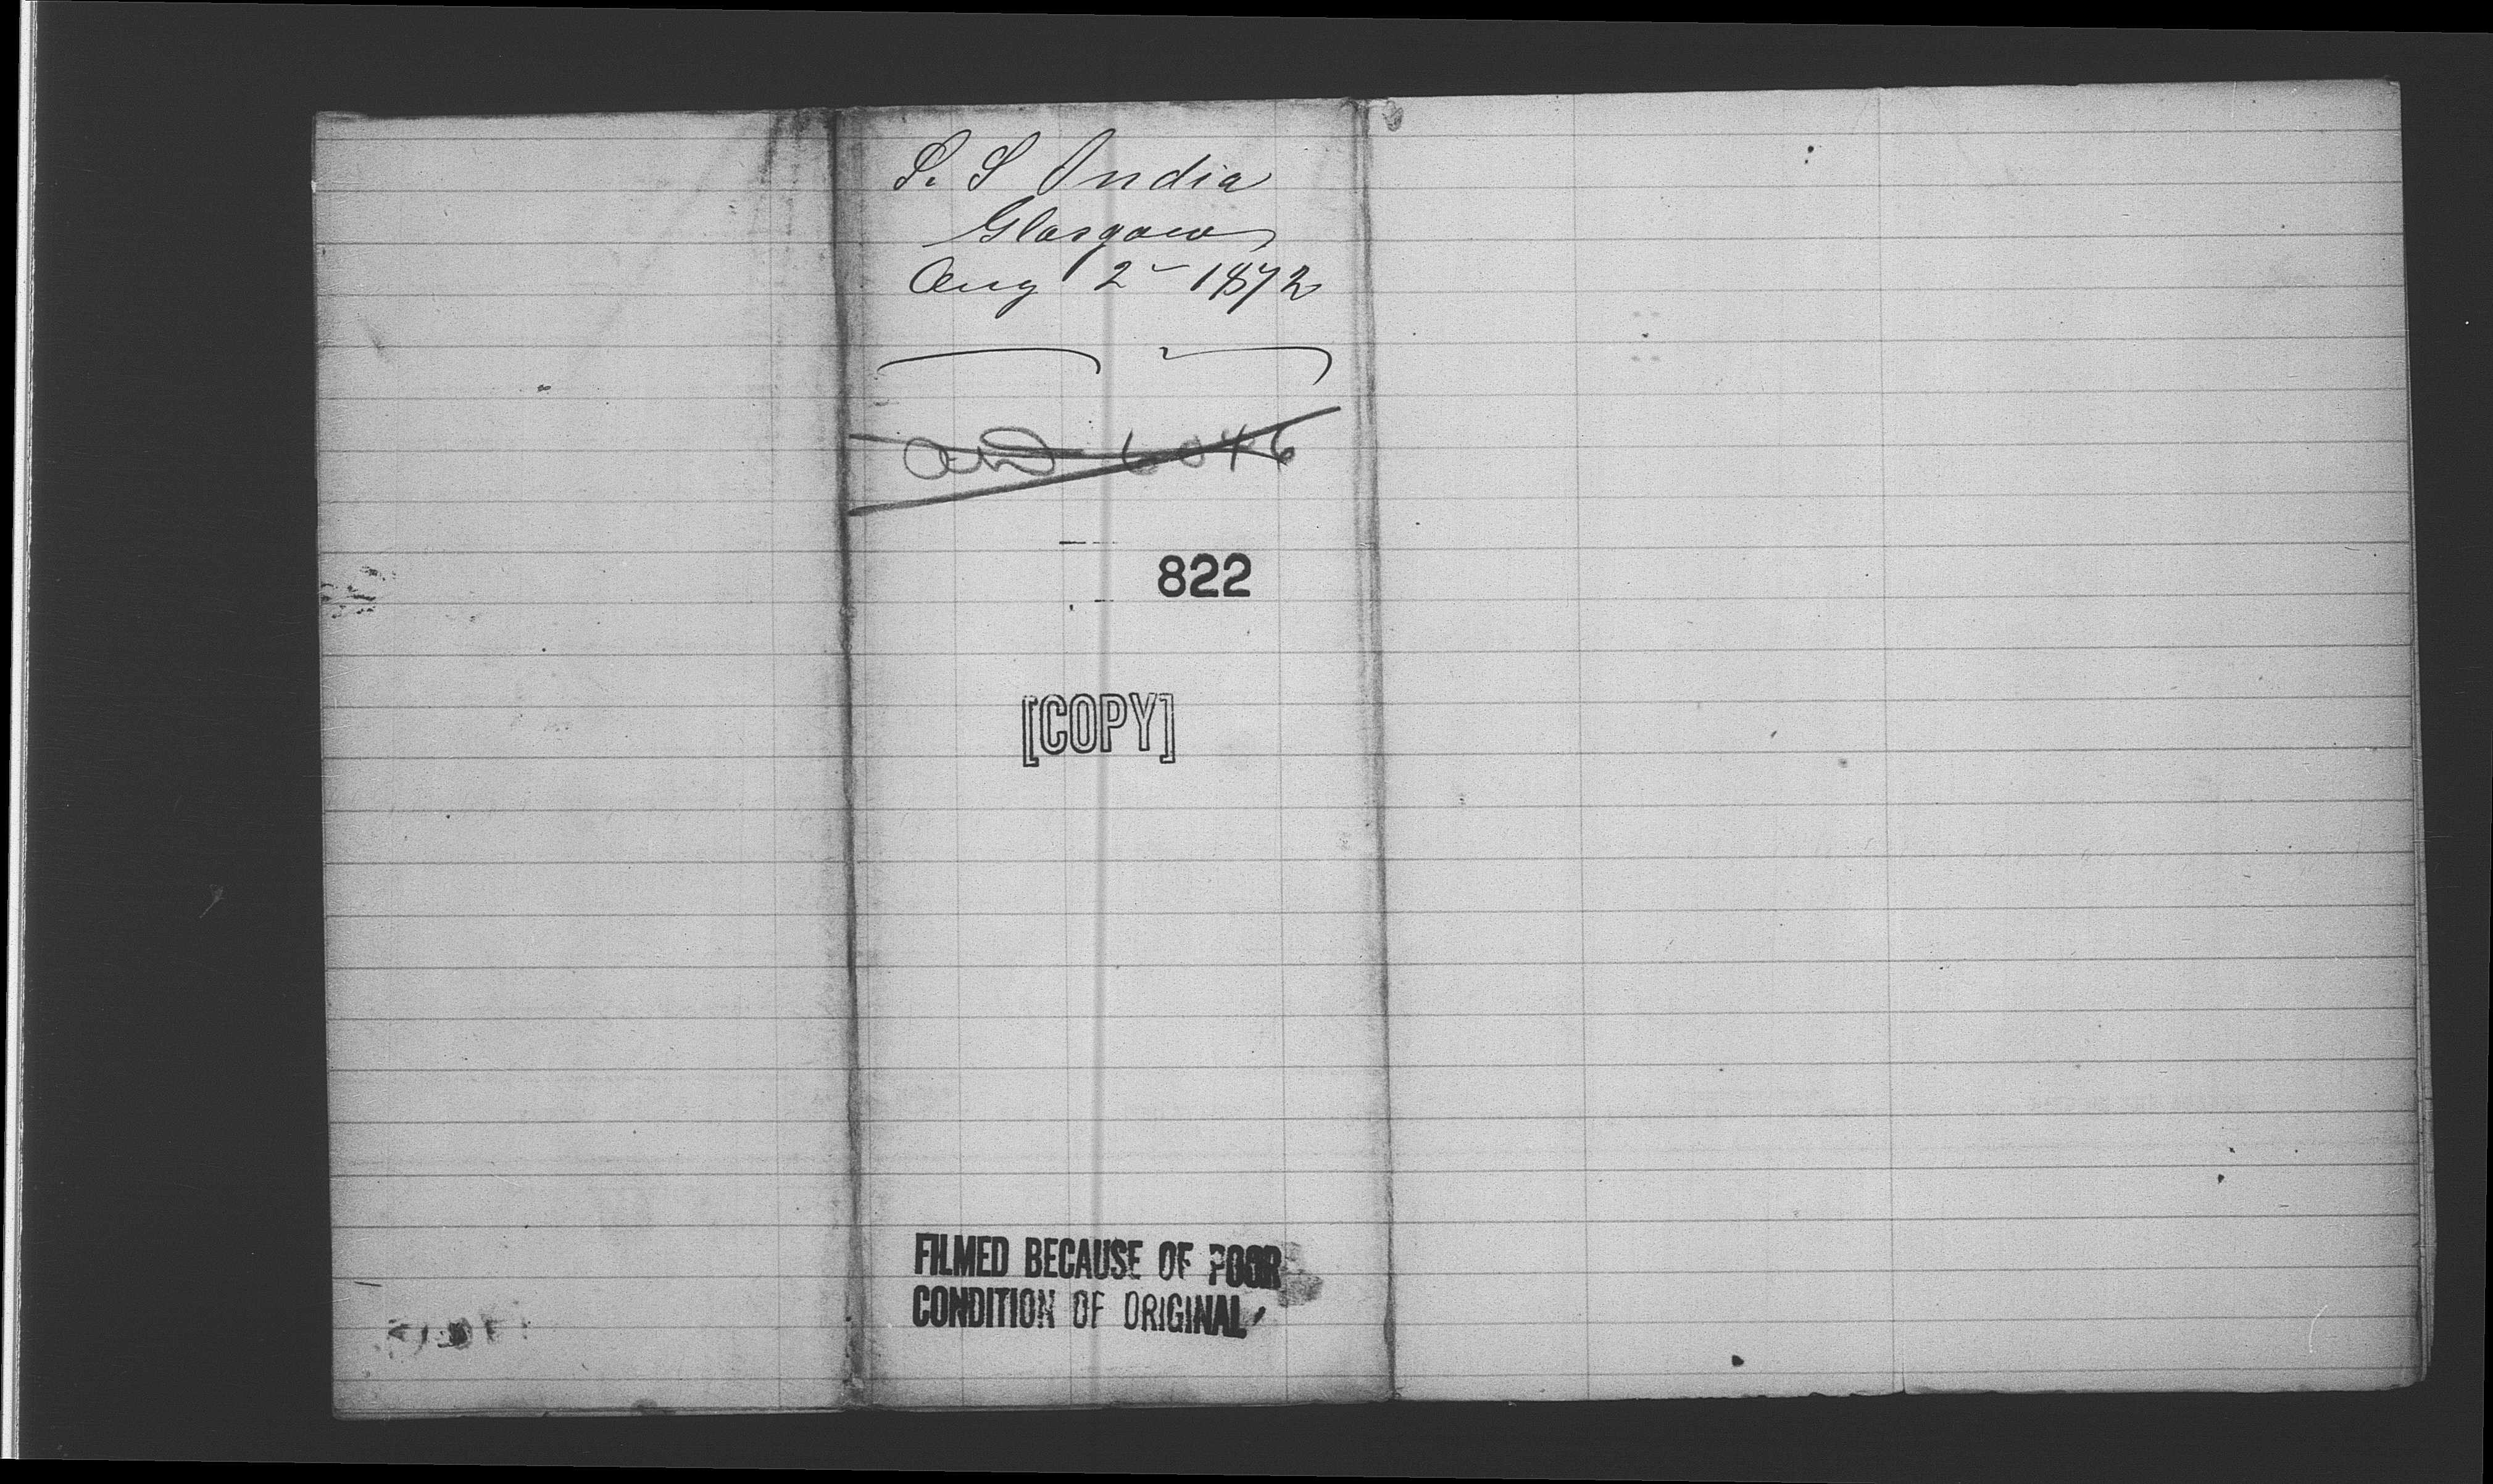 S. S India
Glasgow
Aug 2 - 1872
6046
822
[COPY]
FILMED BECAUSE OF POOR
CONDITION OF ORIGINAL